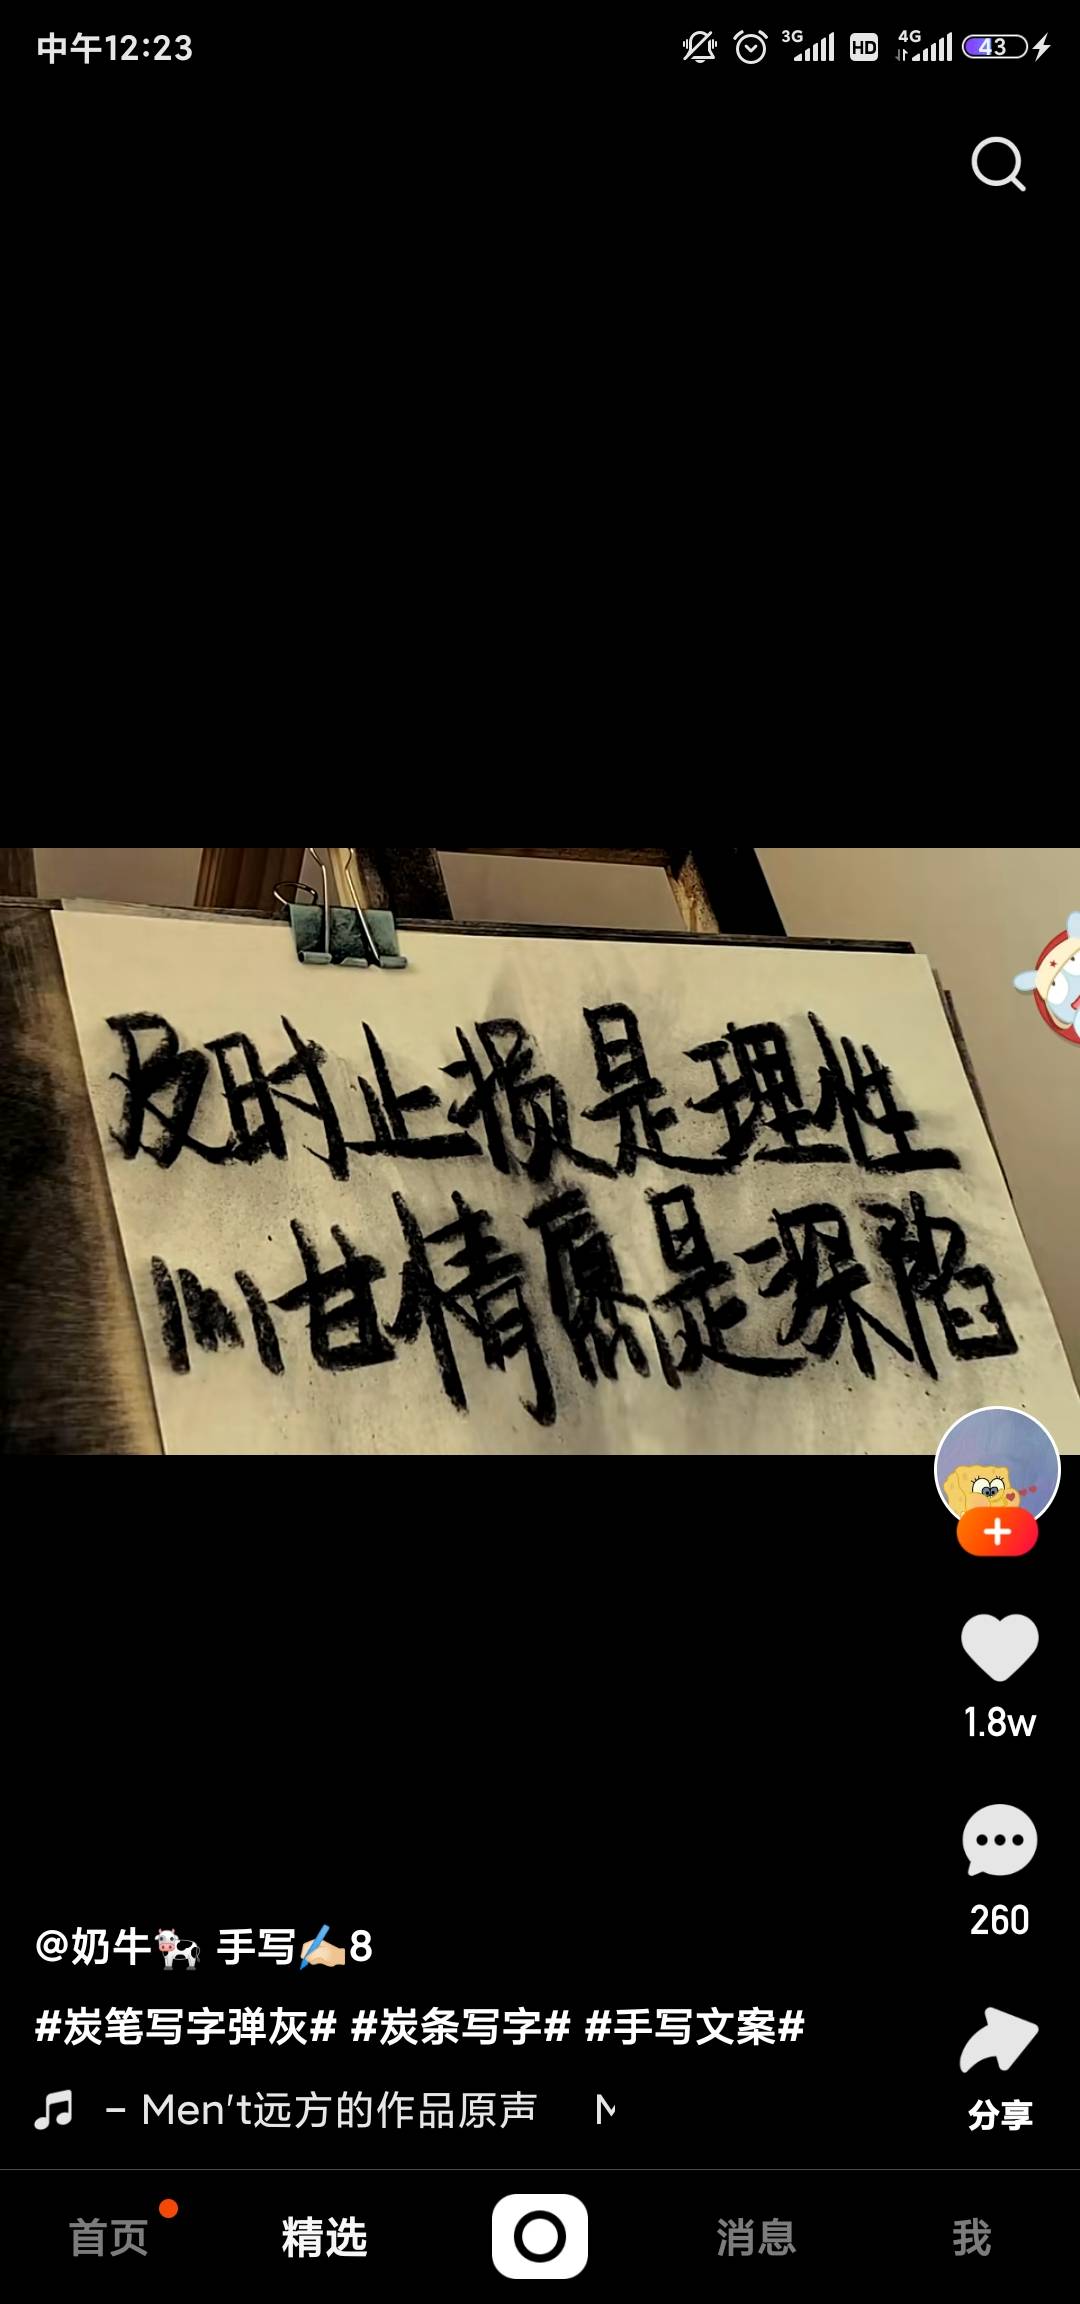 中午12:23
3G
HD
4G
43
及时止损是理性
心甘情愿是深陷
1.8w
260
@奶牛🐄 手写✍🏻8
#炭笔写字弹灰# #炭条写字# #手写文案#
– Men't远方的作品原声
分享
首页
精选
消息
我